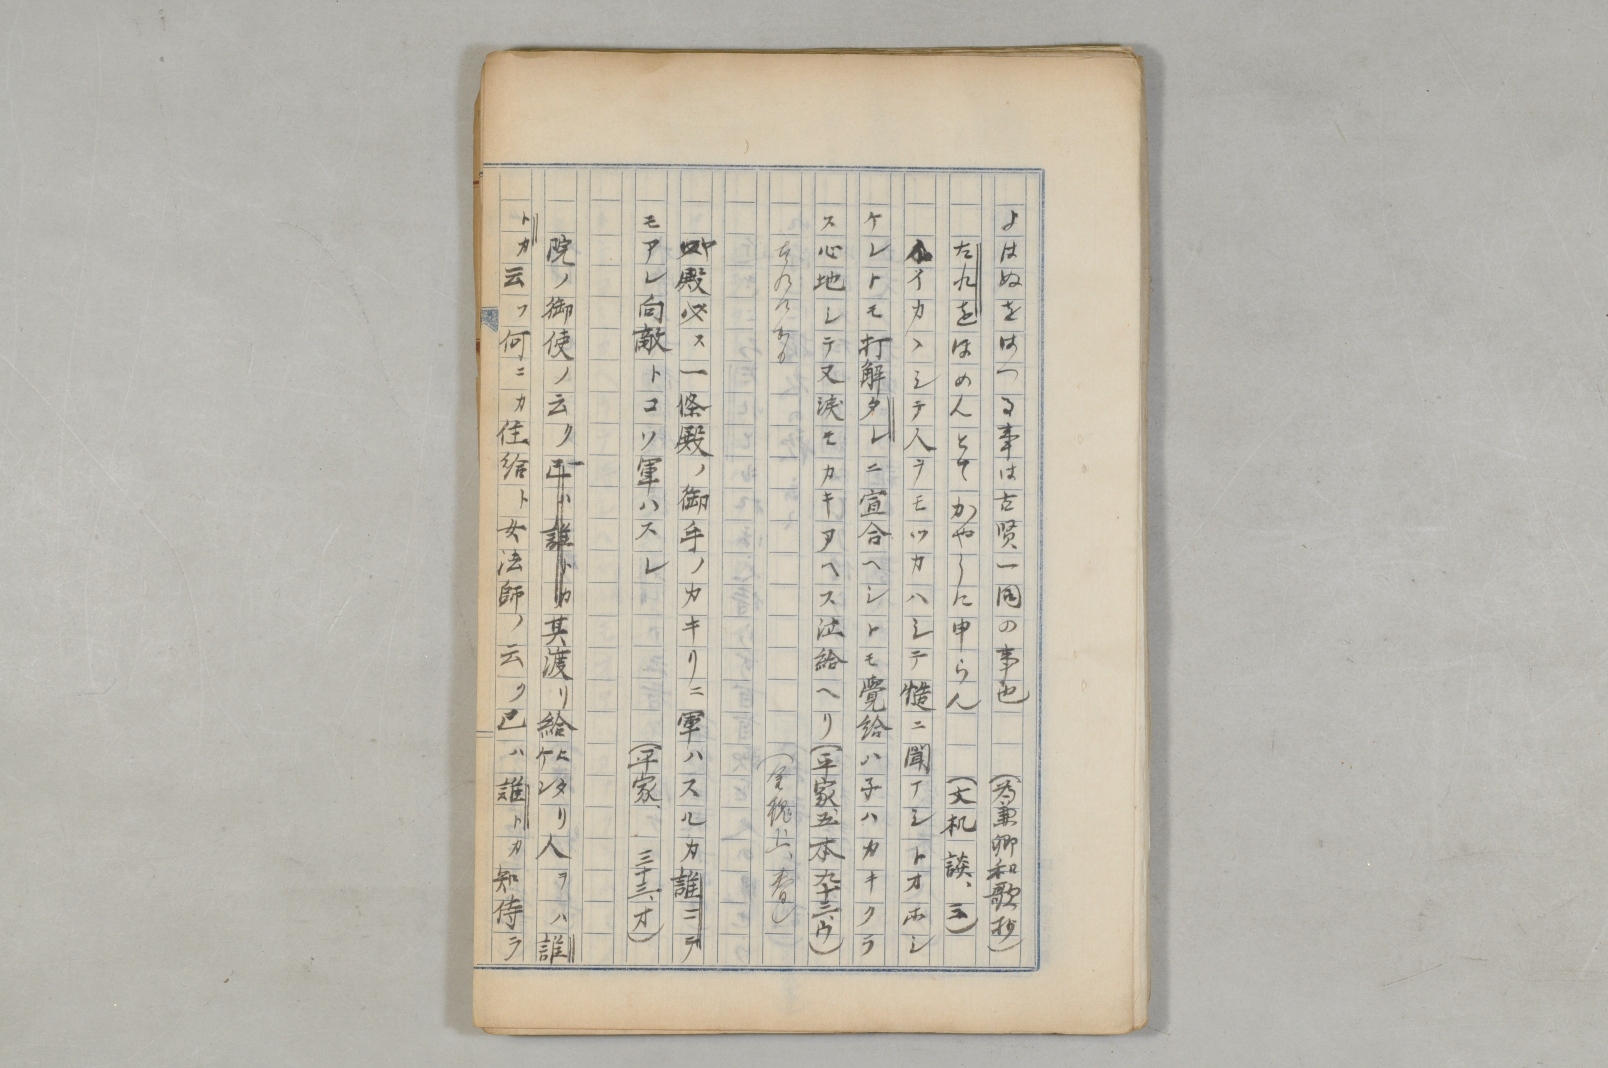 よはぬをはつる事は古賢一同の事也　（為兼卿和歌抄）
たれをはめんとてかやうに申らん　（文机談、三）
イカヽシテ人ヲモツカハシテ慥ニ聞ナシトオホシ
ケレトモ打解タレニ宣合ヘシトモ覚給ハ子ハカキクラ
ス心地シテ又涙モカキアヘス泣給ヘリ（平家五本九十三、ウ）
（金槐上、春）
殿必ス一條殿ノ御手ノカキリニ軍ハスルカ誰ニテ
モアレ向敵トコソ軍ハスレ　（平家、三十三、オ）
院ノ御使ノ云ク其渡リ給ヒケンタリ人ヲハ誰
トカ云フ何ニカ住給ト女法師ノ云ク己ハ誰トカ知侍ラ